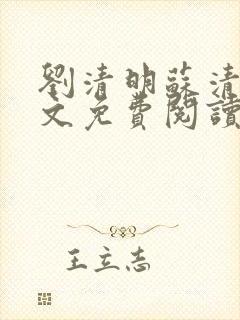 劉清明蘇清
文免費閱讀
王立志